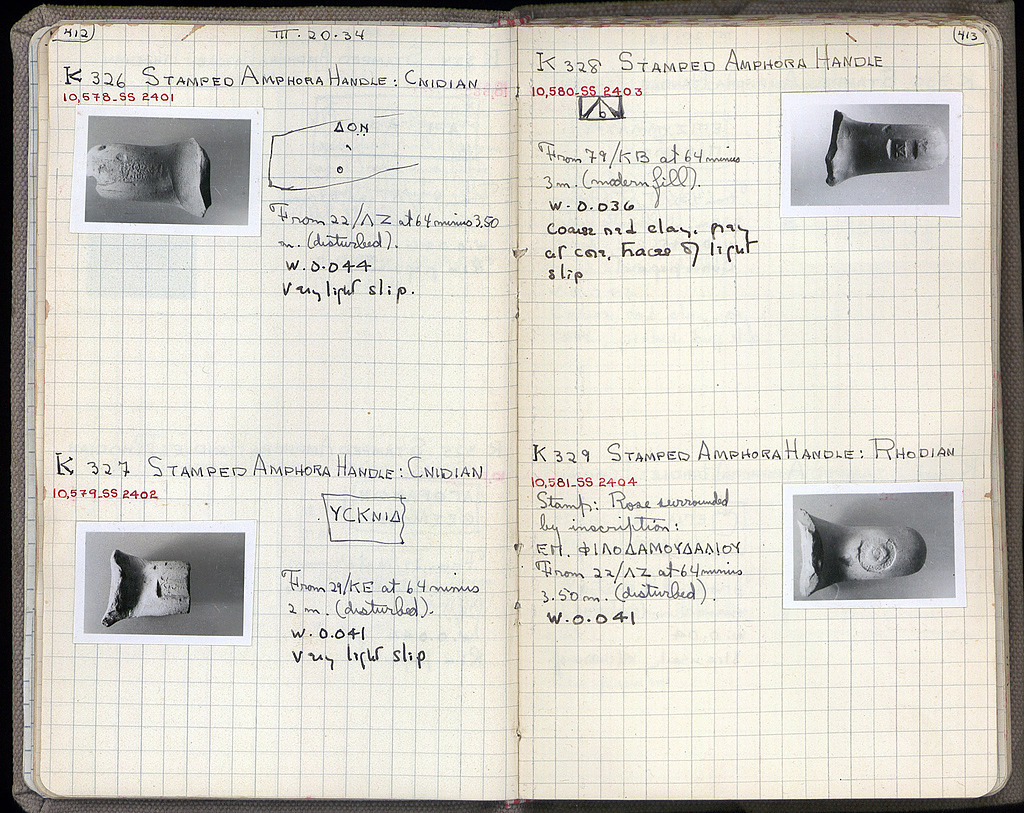 412
III·20·34
K 326 STAMPED AMPHORA HANDLE: CNIDIAN
10,578-SS 2401
ΔΟΝ
From 22/ΛΖ at 64 minus 3.50
m. (disturbed).
W. 0.044
Very light slip.
K 327 STAMPED AMPHORA HANDLE: CNIDIAN
10,579-SS 2402
ΥϹΚΝΙΔ
From 29/ΚΕ at 64 minus
2 m. (disturbed).
W. 0.041
Very light slip
413
K 328 STAMPED AMPHORA HANDLE
10,580-SS 2403
From 79/ΚΒ at 64 minus
3 m. (modern fill).
W. 0.036
Coarse red clay, grey
at core, traces of light
slip
K 329 STAMPED AMPHORA HANDLE: RHODIAN
10,581-SS 2404
Stamp: Rose surrounded
by inscription:
ΕΠ. ΦΙΛΟΔΑΜΟΥΔΑΛΙΟΥ
From 22/ΛΖ at 64 minus
3.50 m. (disturbed).
W. 0.041